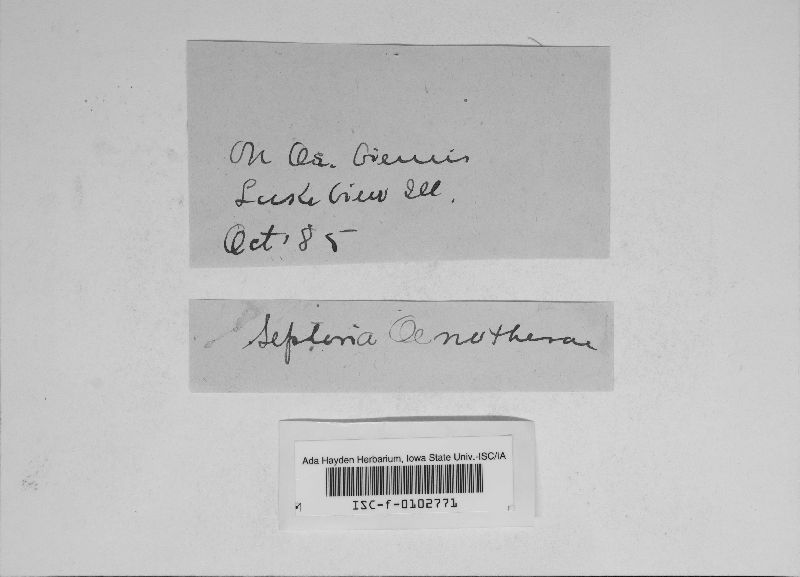 On Oe. biennis
Lake View Ill.
Oct '85
Septoria Oenotherae
Ada Hayden Herbarium, Iowa State Univ.-ISC/IA
ISC-f-0102771